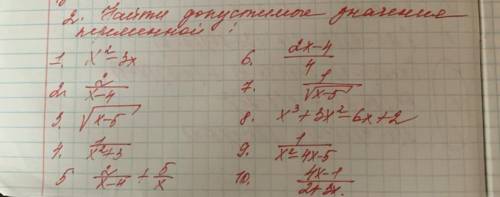 2. Найти допустимые значение
пеменной :
1. x² - 3x
2. 2/(x-4)
3. √(x-5)
4. 1/(x²+3)
5. 2/(x-4) + 5/x
6. (2x-4)/4
7. 1/√(x-5)
8. x³ + 3x² - 6x + 2
9. 1/(x²-4x-5)
10. (4x-1)/(2+3x).